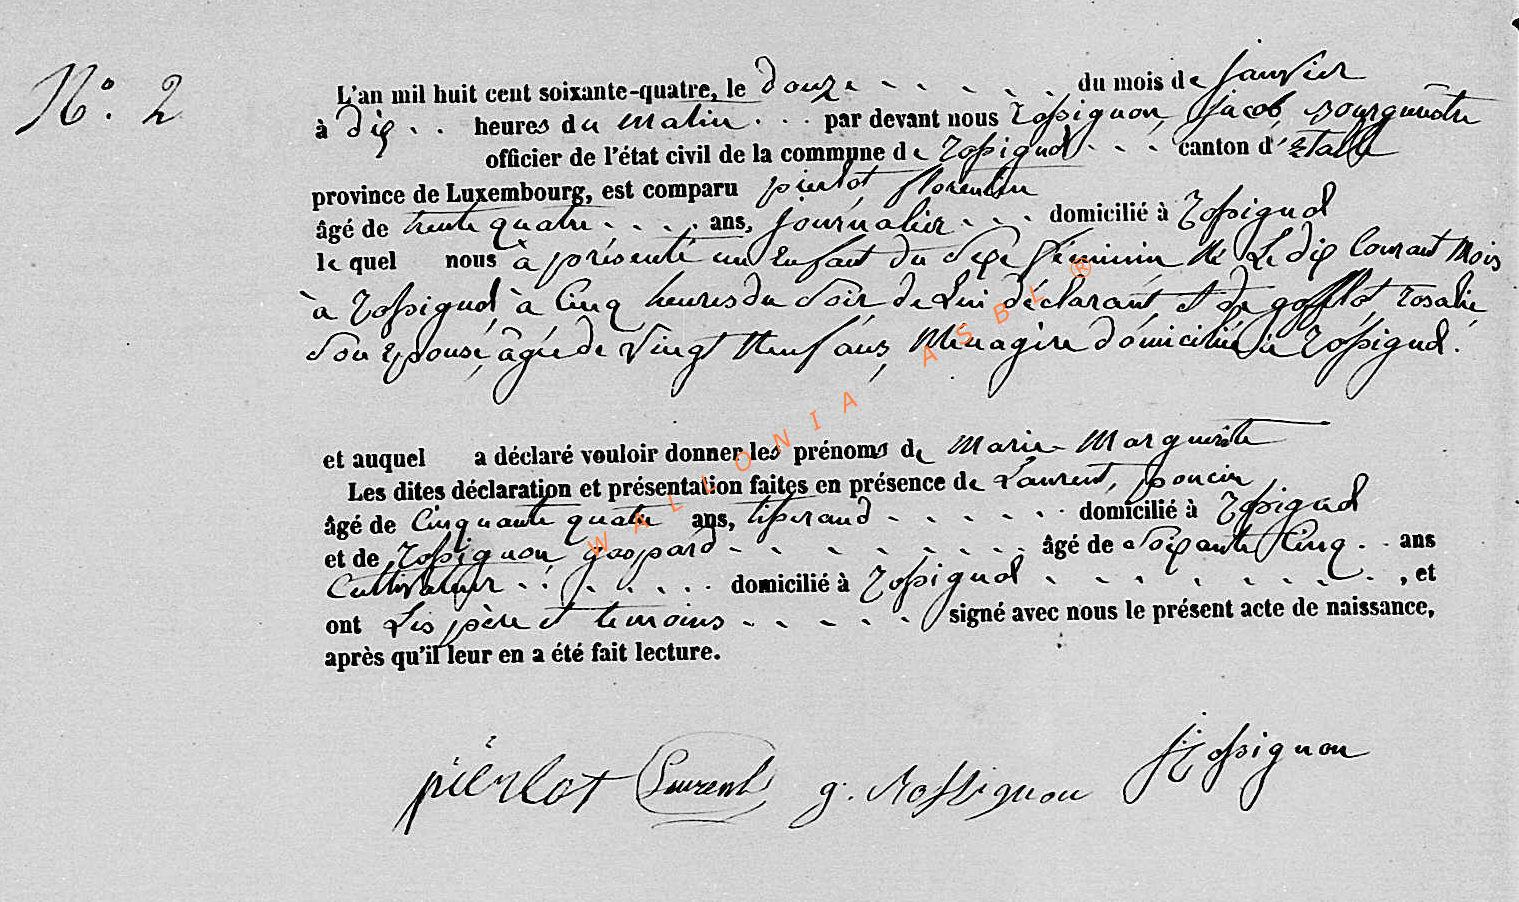 N° 2
L'an mil huit cent soixante-quatre, le douze du mois de janvier
à dix heures du matin par devant nous rossignon, jacob, Bourgmestre
officier de l'état civil de la commune de rossignol canton d'Etalle
province de Luxembourg, est comparu pierlot, florentin
âgé de trente quatre ans, journalier domicilié à rossignol
le quel nous à présenté un Enfant du Sexe féminin Né Le dix Courant Mois
à rossignol, à Cinq heures du Soir, de Lui déclarant, et de gofflot, rosalie,
Son Epouse, âgée de Vingt Neuf ans, Ménagère domiciliée à rossignol.
et auquel a déclaré vouloir donner les prénoms de Marie-Marguerite
Les dites déclaration et présentation faites en présence de Laurent, poncin
âgé de Cinquante quatre ans, tisserand domicilié à rossignol
et de rossignon, gaspard âgé de Soixante Cinq ans
Cultivateur domicilié à rossignol, et
ont Les père et temoins signé avec nous le présent acte de naissance,
après qu'il leur en a été fait lecture.
pierlot Laurent g. Rossignon J Rossignon
WALLONIA ASBL ®